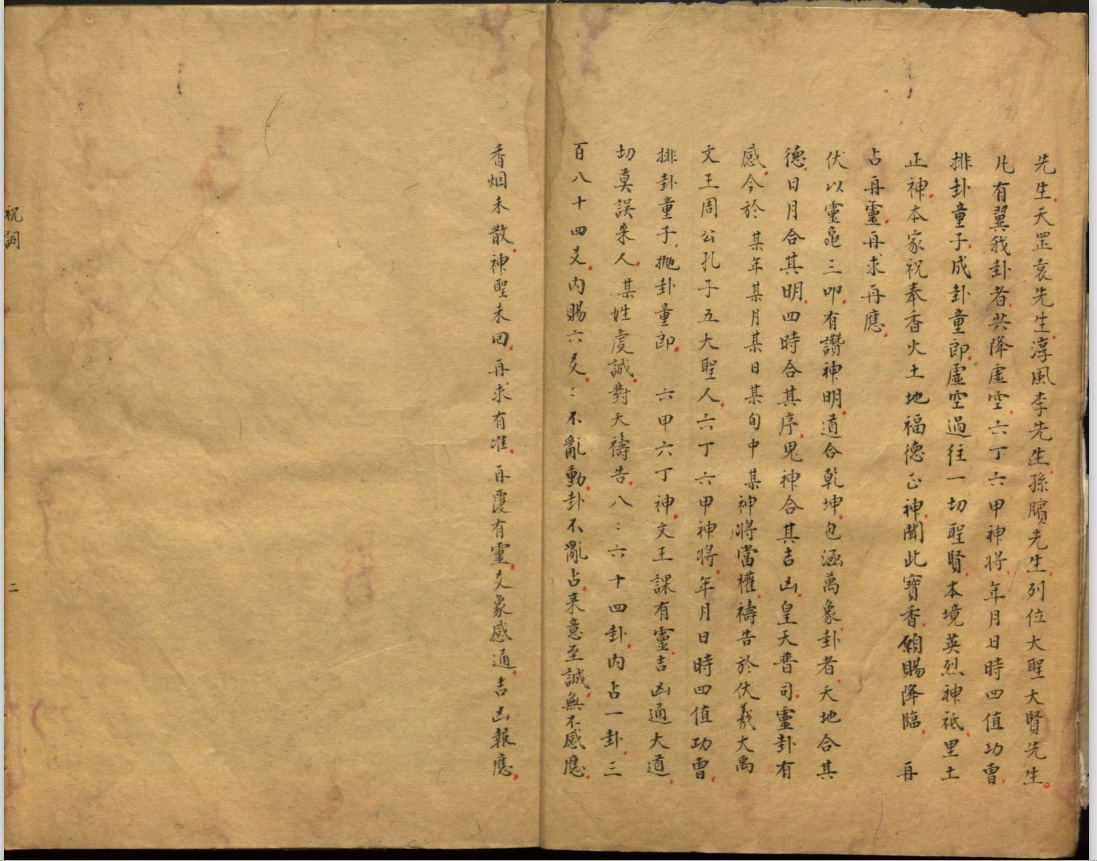 先生天罡袁先生淳風李先生孫臏先生列位大聖大賢先生
凡有翼我卦者共降虛空六丁六甲神將年月日時四值功曹
排卦童子成卦童郎虛空過往一切聖賢本境英烈神祇里土
正神本家祝奉香火土地福德正神聞此寶香願賜降臨　再
占再靈再求再應
伏以靈龜三叩有讚神明道合乾坤包涵萬象卦者天地合其
德日月合其明四時合其序鬼神合其吉凶皇天普司靈卦有
感今於某年某月某日某旬中某神將當權禱告於伏羲大禹
文王周公孔子五大聖人六丁六甲神將年月日時四值功曹
排卦童子拋卦童郎　六甲六丁神文王課有靈吉凶通大道
切莫誤來人某姓虔誠對天禱告八〻六十四卦內占一卦三
百八十四爻內賜六爻〻不亂動卦不亂占來意至誠無不感應
香烟未散神聖未回再求有准再覆有靈爻象感通吉凶報應
祝詞
二